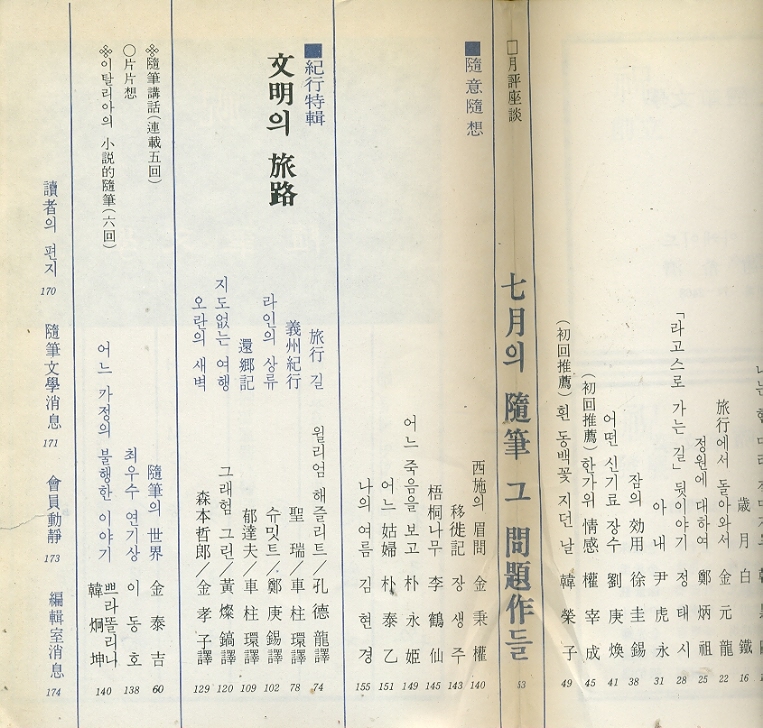 歲月 白鐵 16
旅行에서 돌아와서 金元龍 22
정원에 대하여 鄭炳祖 25
「라고스로 가는 길」 뒷이야기 정태시 28
아내 尹虎永 31
잠의 効用 徐圭錫 38
어떤 신기료 장수 劉庚煥 41
(初回推薦) 한가위 情感 權宰成 45
(初回推薦) 흰 동백꽃 지던 날 韓榮子 49
□月評座談 七月의 隨筆 그 問題作들 53
■隨意隨想
西施의 眉間 金秉權 140
移徙記 장생주 143
梧桐나무 李鶴仙 145
어느 죽음을 보고 朴永姬 149
어느 姑婦 朴泰乙 151
나의 여름 김현경 155
■紀行特輯
文明의 旅路
旅行 길 윌리엄 해즐리트／孔德龍譯 74
義州紀行 聖瑞／車柱環譯 78
라인의 상류 슈밋트／鄭庚錫譯 102
還鄕記 郁達夫／車柱環譯 109
지도없는 여행 그래험 그린／黃燦鎬譯 120
오란의 새벽 森本哲郎／金孝子譯 129
※隨筆講話(連載五回) 隨筆의 世界 金泰吉 60
○片片想 최우수 연기상 이동호 138
※이탈리아의 小説的隨筆(六回) 어느 가정의 불행한 이야기 쁘라뚤리나 韓炯坤 140
讀者의 편지 170
隨筆文學消息 171
會員動靜 173
編輯室消息 174